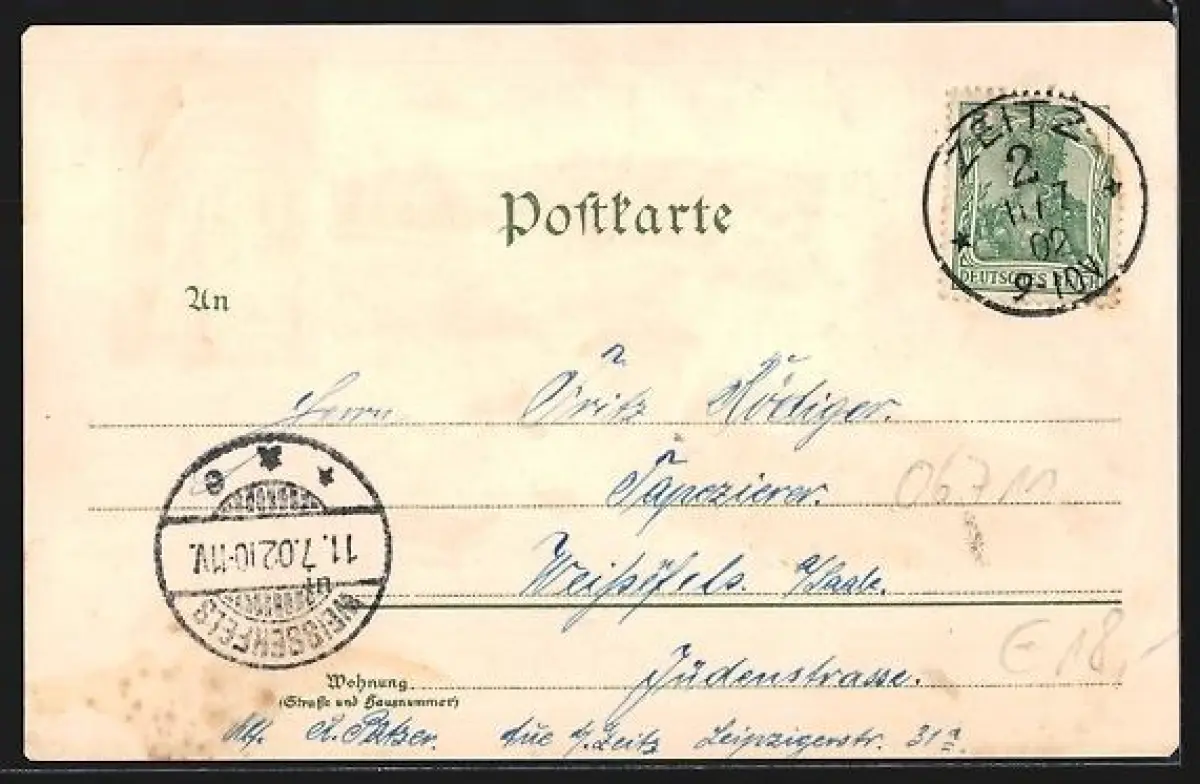 ZEITZ
2
11 7
02
9-10V
DEUTSCHES REICH
Postkarte
An
Herrn Fritz Rödiger.
Tapezierer.
067 M
Weißenfels. a/Saale.
Judenstrasse.
€ 18,-
11. 7. 02 10-11V.
WEISSENFELS
Wohnung
(Straße und Hausnummer)
Abs. Zeitz Leipzigerstr. 31a.